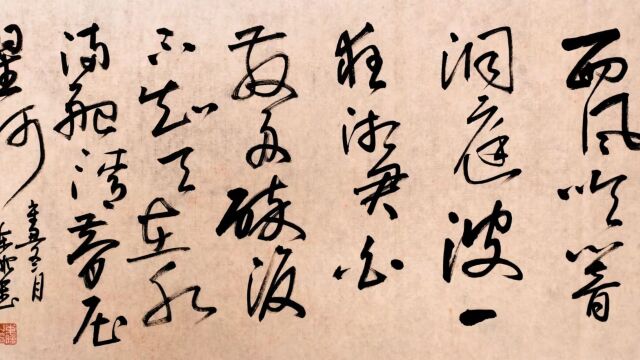 西风吹
洞庭波一
夜湘君白
发多醉後
不知天在水
满船清梦压
星河
辛丑冬月